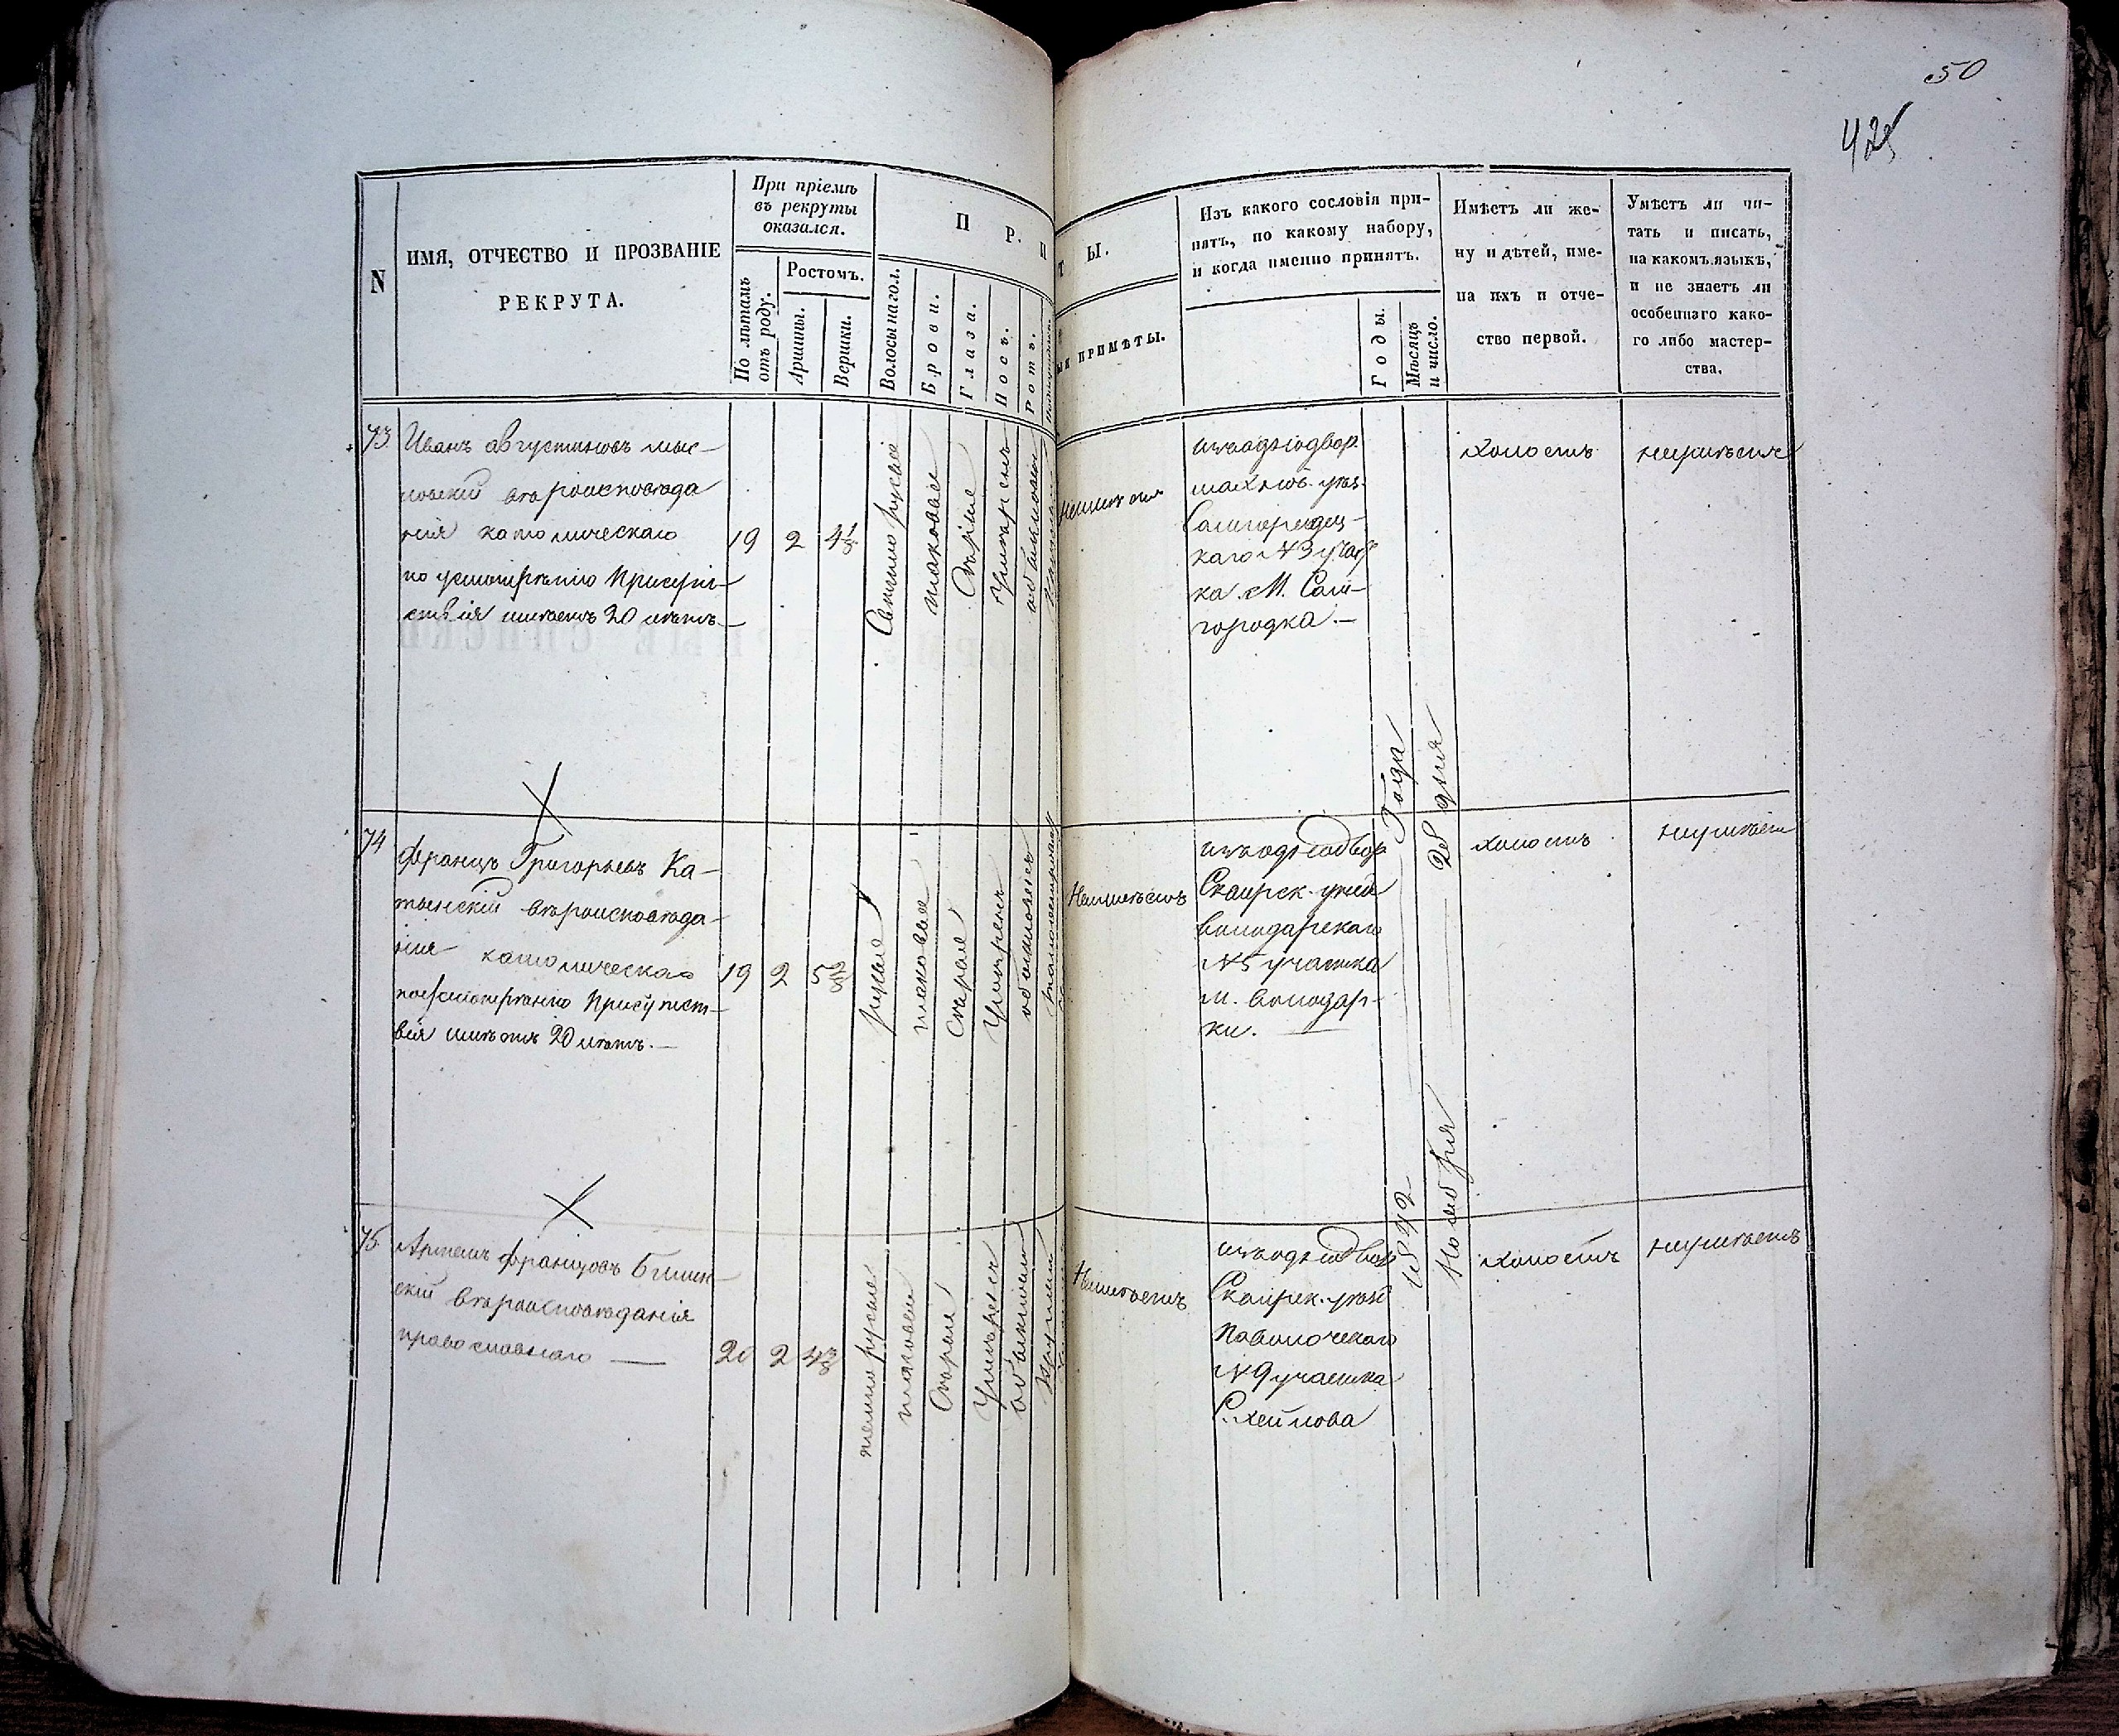 50
425
N
ИМЯ, ОТЧЕСТВО И ПРОЗВАНІЕ
РЕКРУТА.
При пріемѣ
въ рекруты
оказался.
По лѣтамъ
отъ роду.
Ростомъ.
Аршины.
Вершки.
П Р И
Волосы на гол.
Брови.
Глаза.
Носъ.
Ротъ.
Т Ы.
ПРИМѢТЫ.
Изъ какого сословія при-
нятъ, по какому набору,
и когда именно принятъ.
Годы.
Мѣсяцъ
и число.
Имѣетъ ли же-
ну и дѣтей, име-
на ихъ и отче-
ство первой.
Умѣетъ ли чи-
тать и писать,
на какомъ языкѣ,
и не знаетъ ли
особеннаго како-
го либо мастер-
ства.
73
Иванъ Августиновъ
вѣроисповѣда
нія католическаго
по усмотрѣнію Присут-
ствія имѣетъ 20 лѣтъ.—
19
2
4 1/8
Свѣтлорусые
таковые
Сѣрые
Умѣренъ
обыкновен
Неимѣетъ
изъ однодвор
Самгородец-
каго №3 участ
ка М. Сам-
городка.—
холостъ
неумѣетъ
74
Францъ Григорьевъ Ка-
вѣроисповѣда-
нія католическаго
по усмотрѣнію Присутст-
вія имѣетъ 20 лѣтъ.—
19
2
русые
таковые
Сѣрые
Умѣренъ
обыкновенъ
Неимѣетъ
изъ однодвор
Сквирск. уѣзда
Володарскаго
№5 участка
м. Володар-
ки.—
холостъ
неумѣетъ
75
Артемъ Францовъ
скій вѣроисповѣданія
православнаго —
20
2
темнорусые
таковые
Сѣрые
Умѣренъ
обыкновен
Неимѣетъ
изъ однодвор
Сквирск. уѣзд
Паволочскаго
№9 участка
С.
1842 Года
Ноября 28 дня
холостъ
неумѣетъ